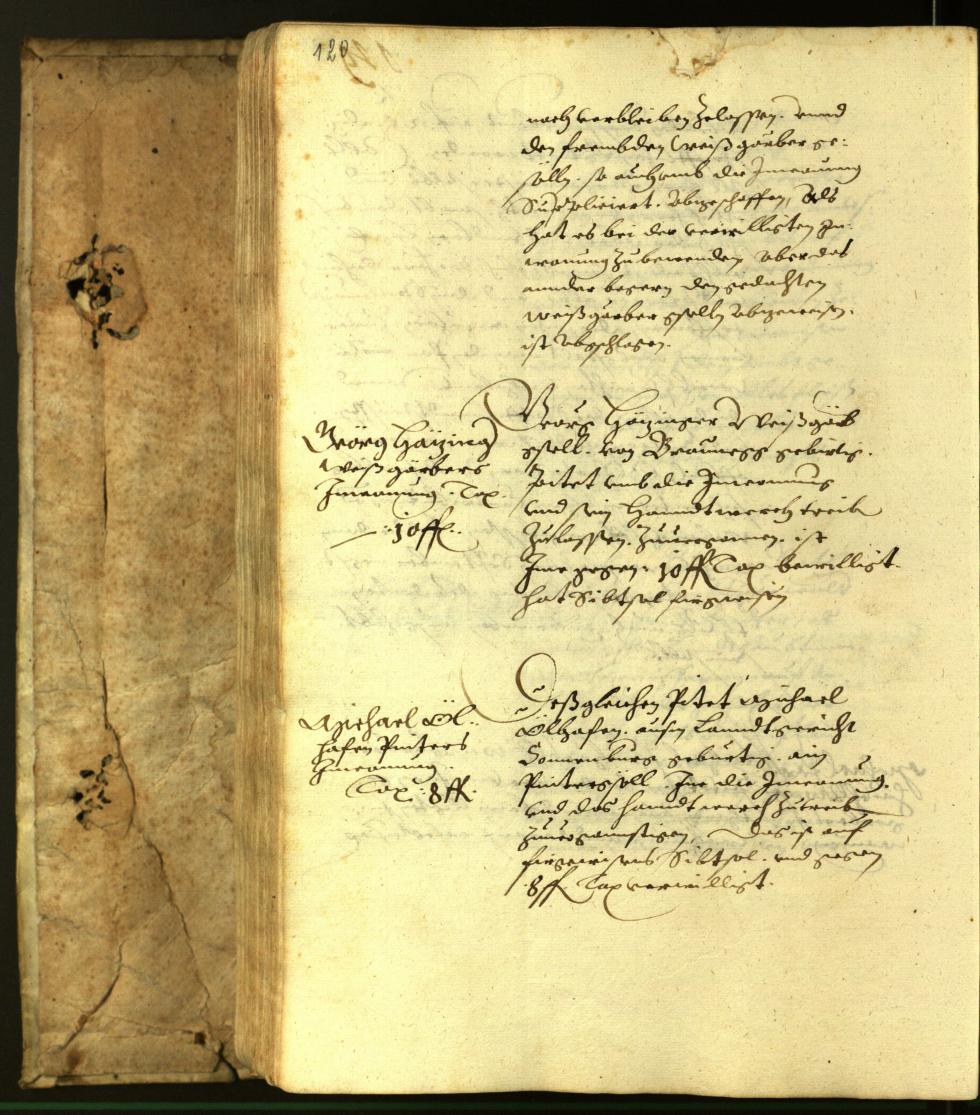 120
nach verbleiben zelassen. unnd
den frembden Weißgärber ge-
sölln. so auch umb die Inwonung
Suppliciert. Abzeschaffen, Als
hat es bei der verwilligten In-
wonung zubewenden Aber das
annder begern den gedachten
weißgärber gselln abzeweisen.
ist Abgschlagen.
Geörg Häizinger
Weißgärbers
Inwonung. Tax
10 ff.
Georg Häizinger Weißgärb
gsell. von Brauneggen gebürtig.
Pitet umb die Inwonung
und sein Hanndtwerch treiben
zulassen. zuvergonnen. ist
Ime gegen. 10 ff Tax bewilligt.
hat Sibtsal firgewisen
Michael Öl-
hafen Pinters
Inwonung.
Tax 8 ff.
Deßgleichen Pitet Michael
Ölhafen. ausm Lanndtgericht
Sonnenburg gebürtig. ain
Pintergsöll. Ime die Inwonung.
und das hanndtwerch zutreiben
zuvergonnstigen, Das ist auf
firgewisens Sibtsal. und gegen
8 ff. Tax verwilligt.